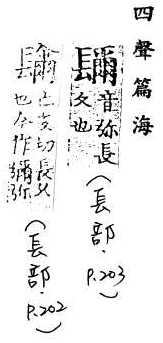 四聲篇海
镾音弥長
久也
(長部.P.203)
镾亡支切長久
也今作彌弥
(長部.P.202)